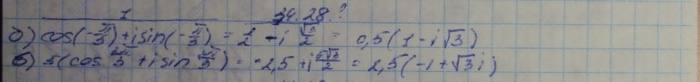 1 34.28.?
а) cos(-π/3) + i sin(-π/3) = 1/2 - i √3/2 = 0,5(1 - i√3)
б) 5(cos 2π/3 + i sin 2π/3) = -2,5 + i 5√3/2 = 2,5(-1 + √3i)